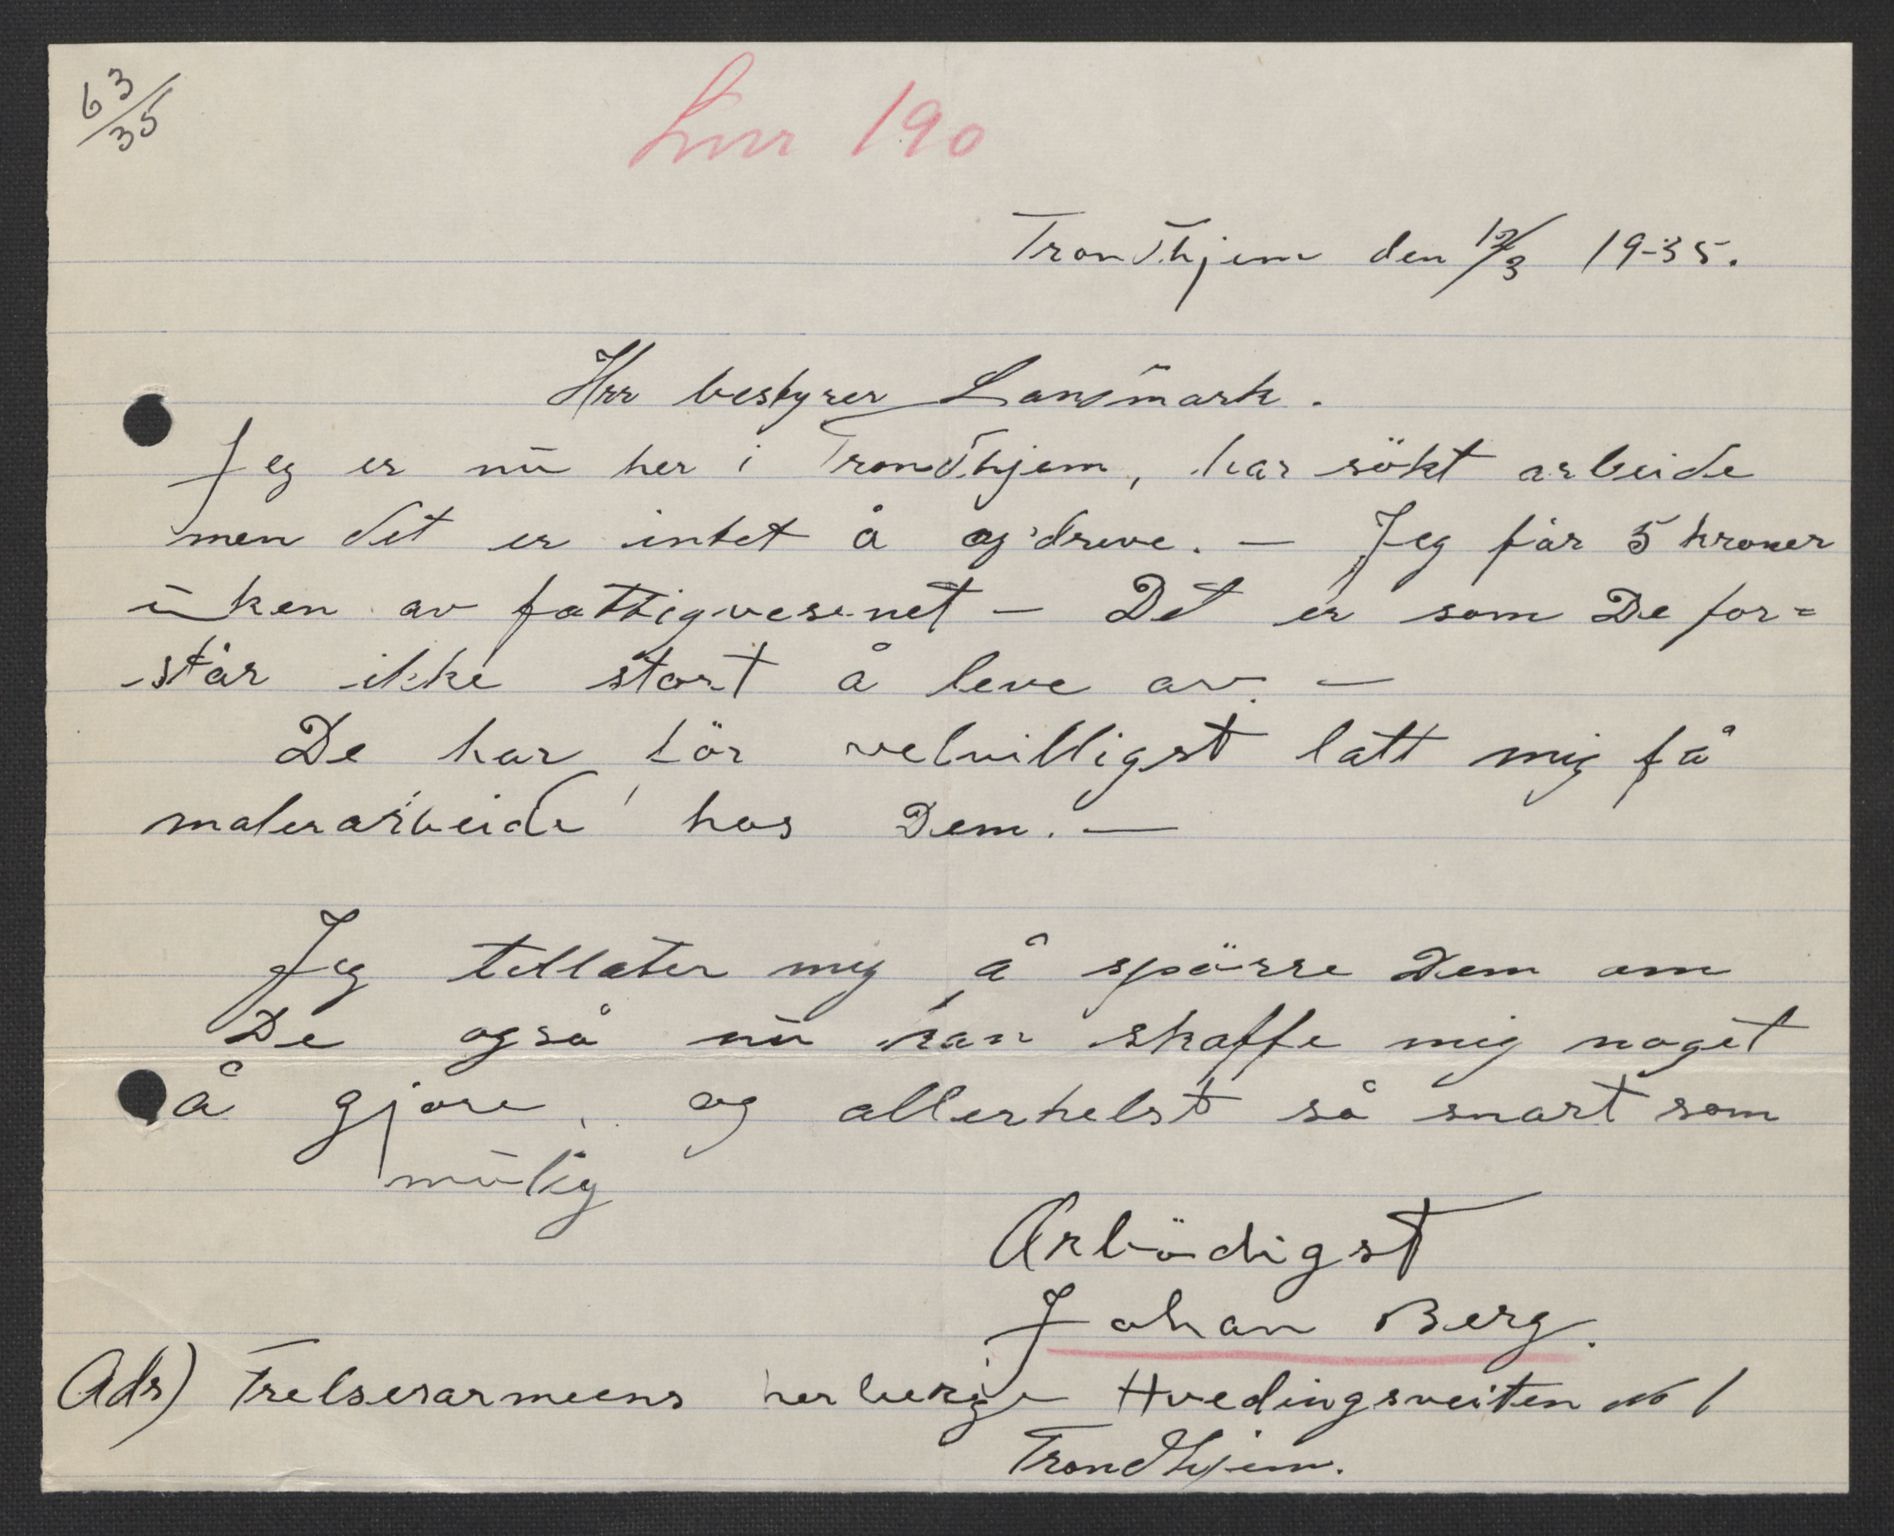 63/35
Lnr 190
Trondhjem den 12/3 19-35.
Hrr bestyrer Landmark.
Jeg er nu her i Trondhjem, har sökt arbeide
men det er intet å opdreve. — Jeg får 5 kroner
uken av fattigvesenet — Det er som De for=
står ikke stort å leve av. —
De har för velvilligst latt mig få
malerarbeide hos Dem. —
Jeg tillater mig å spörre Dem om
De også nu kan skaffe mig noget
å gjøre, og allerhelst så snart som
mulig
Ærbödigst
Johan Berg.
Adr) Frelserarmeens herberge Hvedingsveiten No 1
Trondhjem.